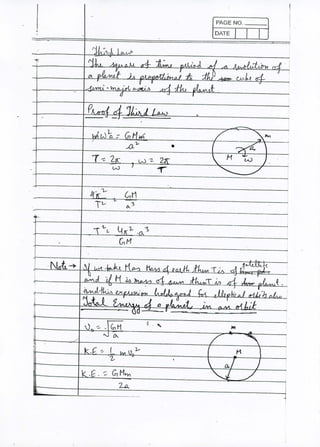 PAGE NO.
DATE
Third Law
The square of time period of a revolution of
a planet is propotional to the cube of
semi-major axis of the planet
Proof of Third Law
mω²a = GMm
a²
T = 2π , ω = 2π
ω T
4π² = GM
T² a³
T² = 4π² a³
GM
m
a
M ω
Note → If we take M as Mass of earth then T is of satellite
and if M is mass of sun then T is of planet.
and this expression holds good for elleptical orbits also.
Total Energy of a planet in an orbit
U₀ = √GM
a
K.E = 1 mv₀²
2
K.E. = GMm
2a
M
M
a